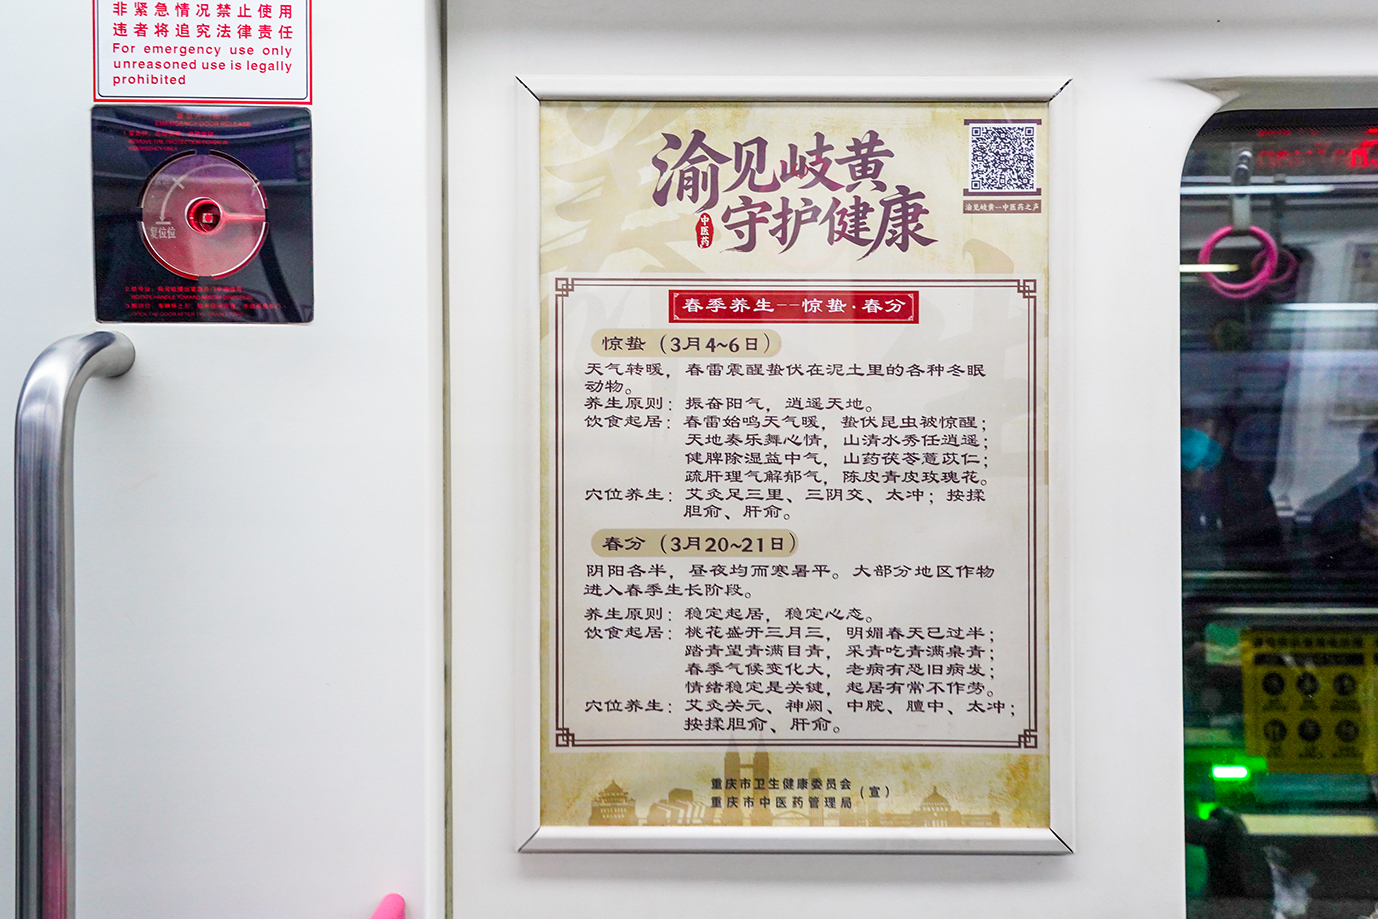 非紧急情况禁止使用
违者将追究法律责任
For emergency use only
unreasoned use is legally
prohibited
EMERGENCY DOOR RELEASE
复位位
渝见岐黄
中医药
守护健康
渝见岐黄—中医药之声
春季养生--惊蛰·春分
惊蛰（3月4~6日）
天气转暖，春雷震醒蛰伏在泥土里的各种冬眠
动物。
养生原则：振奋阳气，逍遥天地。
饮食起居：春雷始鸣天气暖，蛰伏昆虫被惊醒；
天地奏乐舞心情，山清水秀任逍遥；
健脾除湿益中气，山药茯苓薏苡仁；
疏肝理气解郁气，陈皮青皮玫瑰花。
穴位养生：艾灸足三里、三阴交、太冲；按揉
胆俞、肝俞。
春分（3月20~21日）
阴阳各半，昼夜均而寒暑平。大部分地区作物
进入春季生长阶段。
养生原则：稳定起居，稳定心态。
饮食起居：桃花盛开三月三，明媚春天已过半；
踏青望青满目青，采青吃青满桌青；
春季气候变化大，老病有恐旧病发；
情绪稳定是关键，起居有常不作劳。
穴位养生：艾灸关元、神阙、中脘、膻中、太冲；
按揉胆俞、肝俞。
重庆市卫生健康委员会
重庆市中医药管理局
（宣）